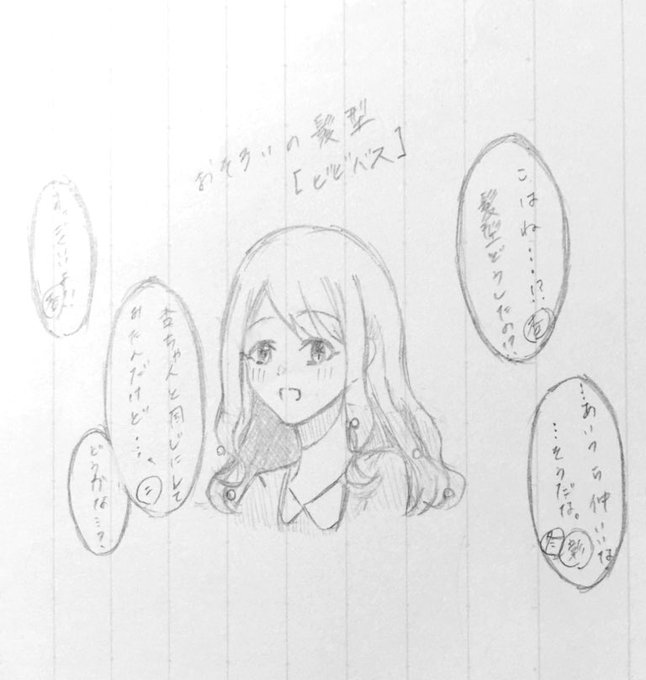 おそろいの髪型
[ビビバス]
こはね…!?
髪型どうしたの!?
杏
…あいつら仲いいな
…そうだな。
彰
杏ちゃんと同じにして
みたんだけど…、
こ
どうかな…?
杏